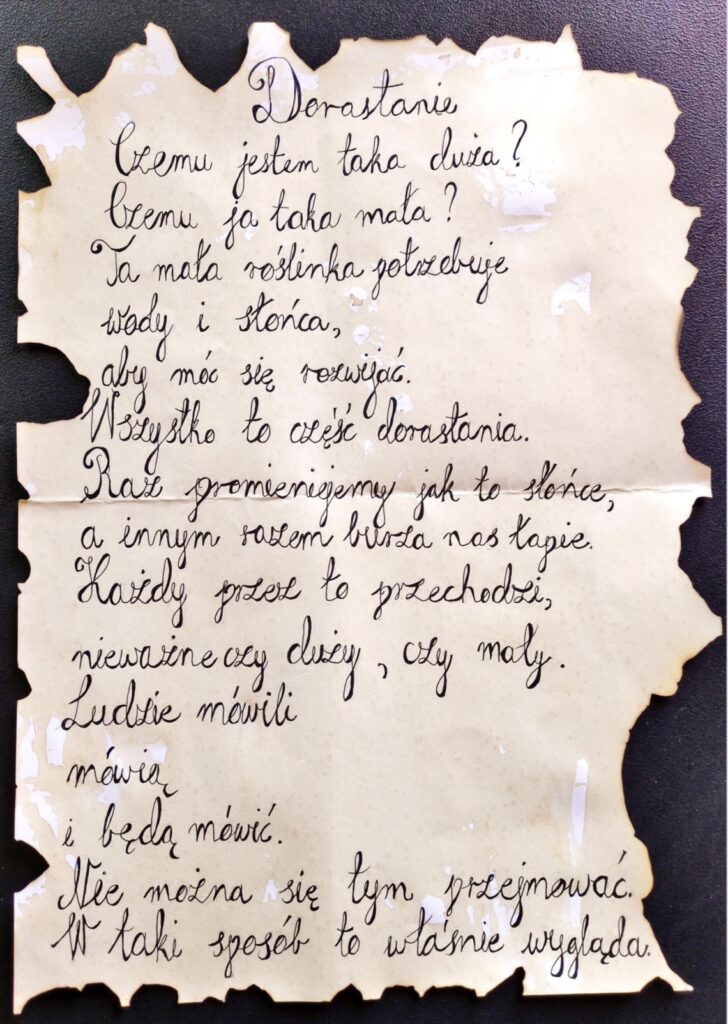 Dorastanie
Czemu jestem taka duża?
Czemu ja taka mała?
Ta mała roślinka potrzebuje
wody i słońca,
aby móc się rozwijać.
Wszystko to część dorastania.
Raz promieniejemy jak to słońce,
a innym razem burza nas łapie.
Każdy przez to przechodzi,
nieważne czy duży, czy mały.
Ludzie mówili
mówią
i będą mówić.
Nie można się tym przejmować.
W taki sposób to właśnie wygląda.